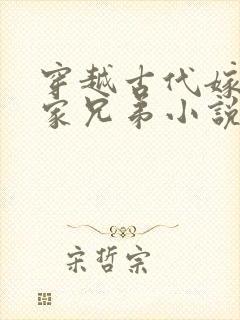 穿越古代嫁
家兄弟小說
宋哲宗